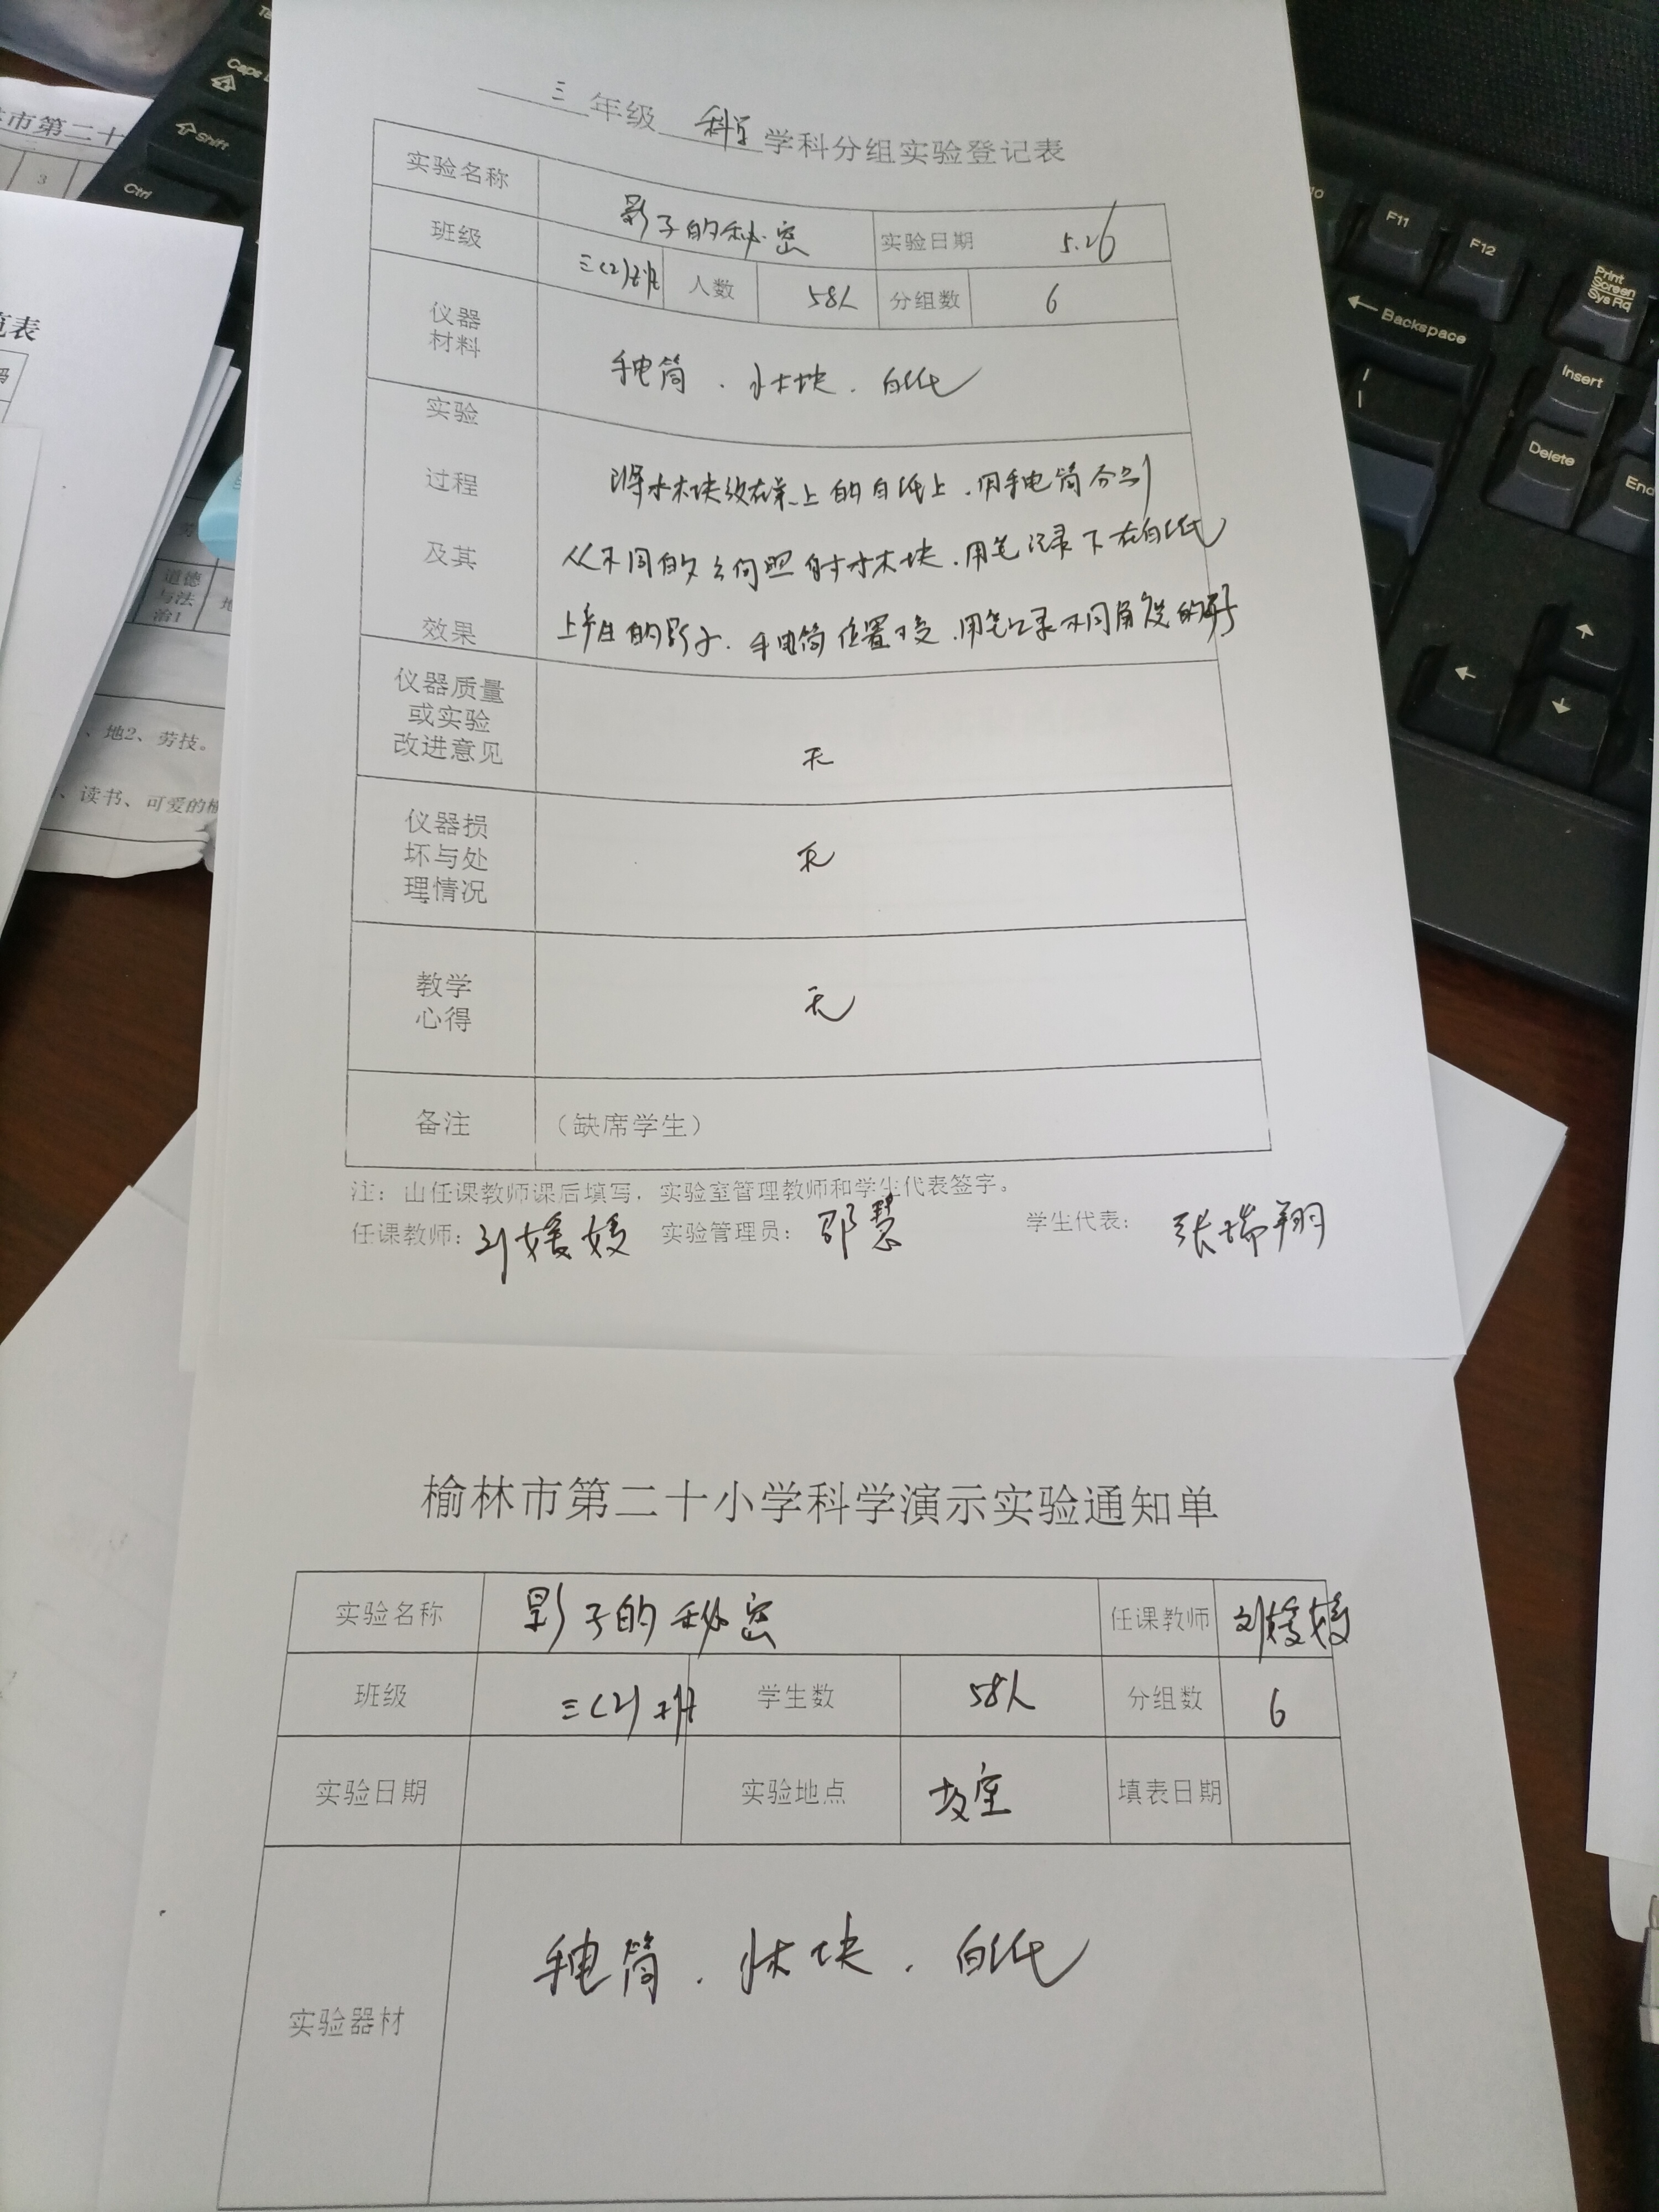 三年级 科学 学科分组实验登记表
实验名称 影子的秘密 实验日期 5.26
班级 三(2)班 人数 58人 分组数 6
仪器
材料
手电筒、小木块、白纸
实验
过程
及其
效果
将小木块放在桌上的白纸上,用手电筒分别
从不同的方向照射小木块,用笔记录下在白纸
上产生的影子.手电筒位置不变,用笔记录不同角度的影子
仪器质量
或实验
改进意见
无
仪器损
坏与处
理情况
无
教学
心得
无
备注 (缺席学生)
注:由任课教师课后填写,实验室管理教师和学生代表签字。
任课教师:刘媛媛 实验管理员:邵慧 学生代表:张瑞翔
榆林市第二十小学科学演示实验通知单
实验名称 影子的秘密 任课教师 刘媛媛
班级 三(2)班 学生数 58人 分组数 6
实验日期 实验地点 教室 填表日期
实验器材 手电筒、小木块、白纸
市第二十
3
览表
道德
与法
治1
、地2、劳技。
、读书、可爱的
Caps
Shift
Ctrl
F11
F12
Print
Screen
Sys Rq
Backspace
Insert
Delete
End